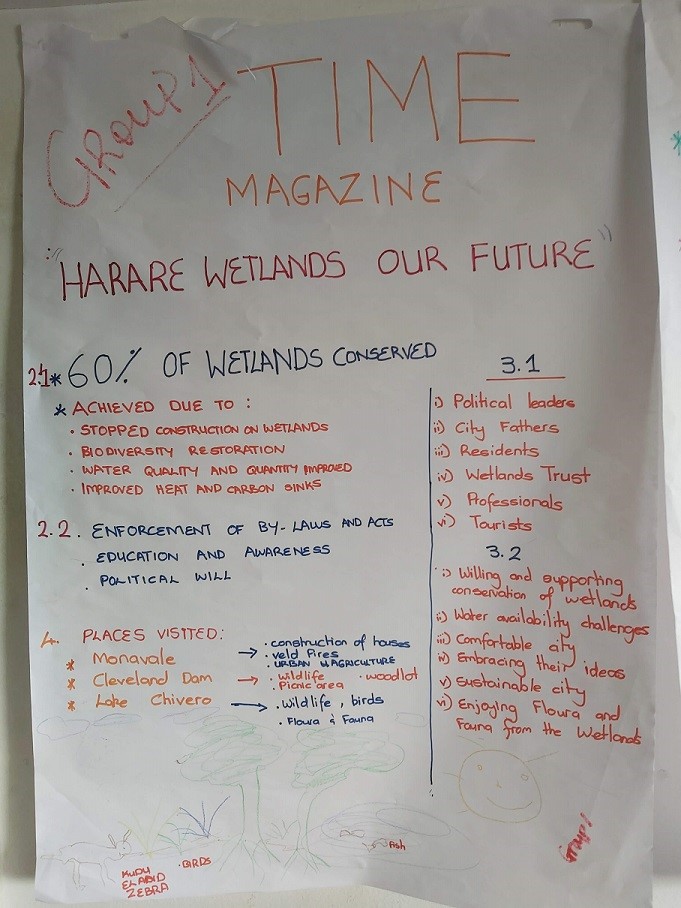 GROUP 1
TIME
MAGAZINE
"HARARE WETLANDS OUR FUTURE"
2.1* 60% OF WETLANDS CONSERVED
* ACHIEVED DUE TO :
· STOPPED CONSTRUCTION ON WETLANDS
· BIODIVERSITY RESTORATION
· WATER QUALITY AND QUANTITY IMPROVED
· IMPROVED HEAT AND CARBON SINKS
2.2. ENFORCEMENT OF BY-LAWS AND ACTS
. EDUCATION AND AWARENESS
. POLITICAL WILL
4. PLACES VISITED:
* Monavale → · construction of houses
· veld fires
· URBAN AGRICULTURE
* Cleveland Dam → · wildlife · woodlot
· Picnic area
* Lake Chivero → · Wildlife, birds
· Floura & Fauna
3.1
i) Political leaders
ii) City Fathers
iii) Residents
iv) Wetlands Trust
v) Professionals
vi) Tourists
3.2
i) Willing and supporting
conservation of wetlands
ii) Water availability challenges
iii) Comfortable city
iv) Embracing their ideas
v) Sustainable city
vi) Enjoying Floura and
Fauna from the Wetlands
KUDU
ELABID
ZEBRA
·BIRDS
fish
Group 1